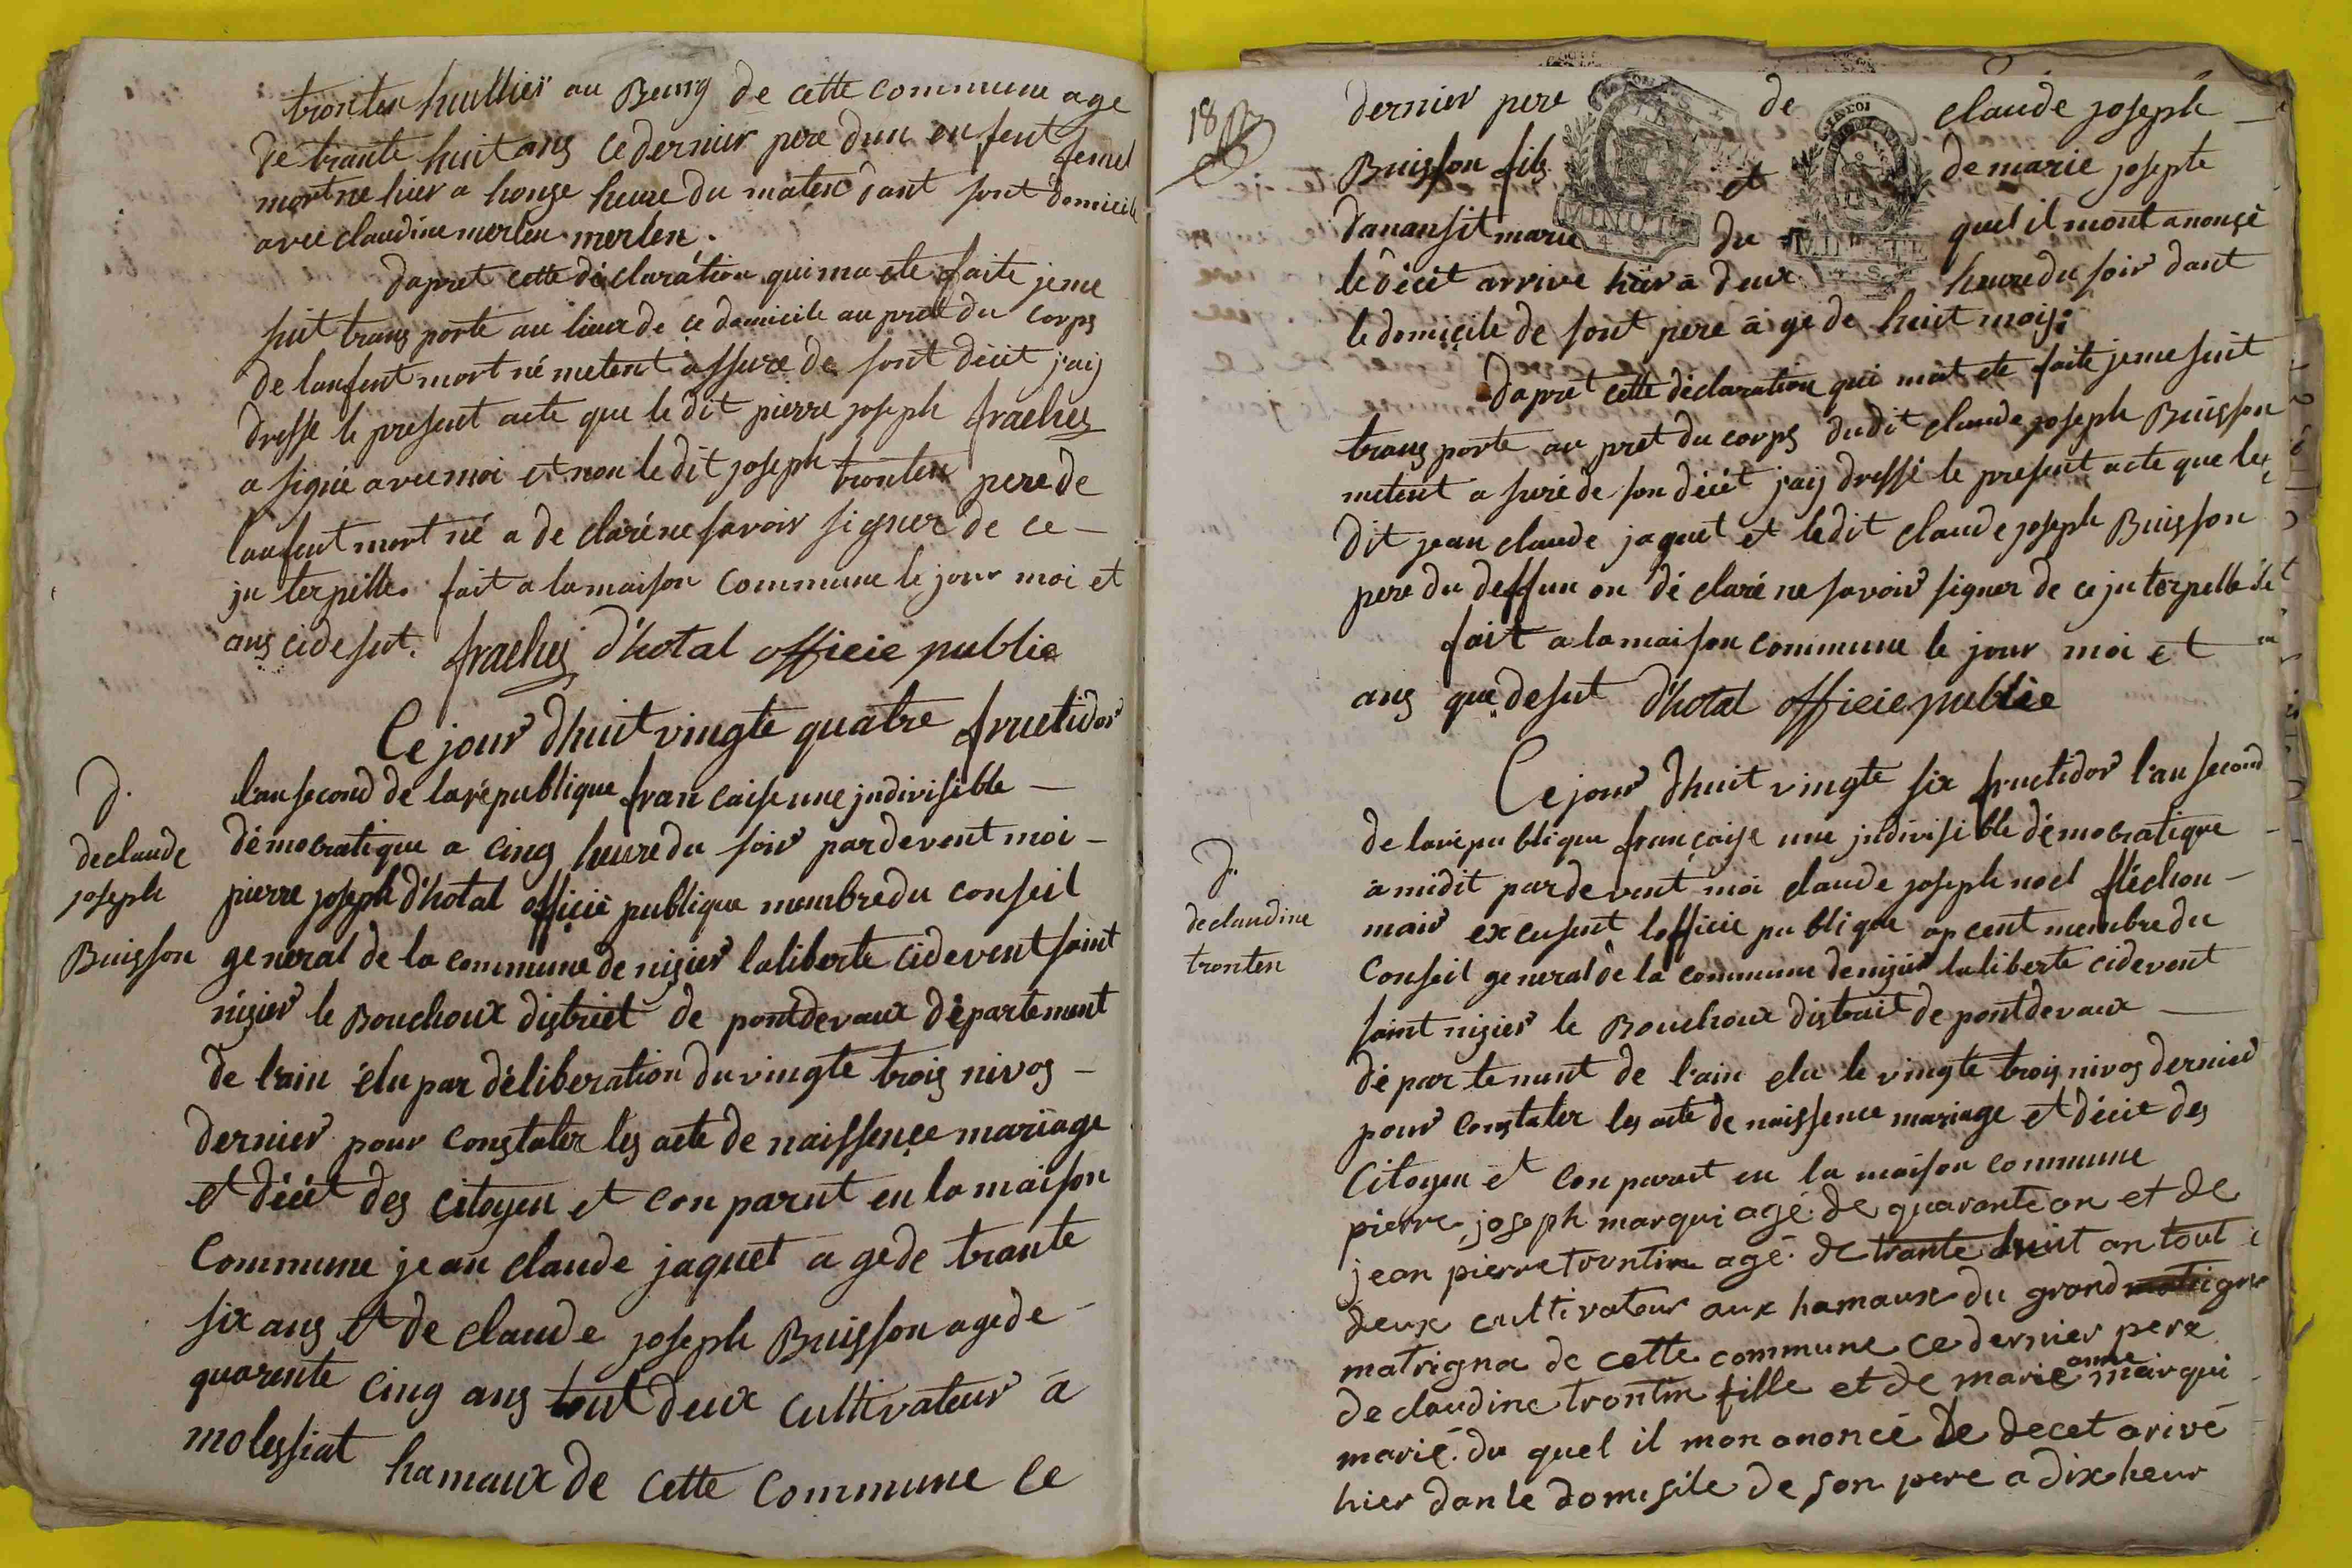 tronten huillier au Bourg de cette commune age
de trante huit ans ce dernier pere dun enfent femel
mort ne hier a honze heure du maten dant sont domicile
avec claudine merlen merlen.
dapret cette déclaration qui ma ete faite je me
suit transporte au lieux de ce domicile au prett du corps
de lanfent mort né metent assure de sont décet j'aij
dresse le present acte que le dit pierre joseph frachey
a signié avec moi et non le dit joseph tronten pere de
lanfent mort né a de claré ne savoir signer de ce –
jnterpille. fait a la maison commune le jour moi et
ans cidesut. frachey d'hotal officie publie
Ce jour dhuit vingte quatre fructidor
d.
de claude
joseph
Buisson
l'an second de la republique francaise une jndivisible –
démocratique a cinq heure du soir pardevent moi –
pierre joseph d'hotal officié publique membre du conseil
general de la commune de nizier la liberte cidevent saint
nizier le Bouchoux district de pontdevaux département
de l'ain élu par déliberation du vingte trois nivos –
dernier pour constater les acte de naissençe mariage
et décét des citoyen et conparut en la maison
Commune jean claude jaquet a gede trante
six ans et de claude joseph Buisson agede
quarente cinq ans tout deux cultivateur a
molessiat hamaux de cette Commune ce
18
dernier pere de claude joseph –
Buisson fils et de marie josepte
dananfit marie du quel il mont anonçé
le décét arrive hièr a deux heure du soir dant
le domiçile de sont pere a ge de huit mois:
MINUTE
MINUTE
dapret cette déclaration qui mat ete faite je me suit
transporte au pret du corps dudit claude joseph Buisson
metent a suré de son décét j'aij dressé le present acte que le
dit jean claude jaquet et ledit claude joseph Buisson
pere du deffun on dé claré ne savoir signer de ce jnterpelle
fait a la maison commune le jour moi et
ans que desut d'hotal officie publie
Ce jour dhuit vingte six fructidor l'an second
d.
de claudine
tronten
de la republique françaisse une jndivisible démocratique
a midit pardevent moi claude joseph noel fléchon –
mair excusent lofficie publique apcent membre du
Conseil general de la commune denizier la liberte cidevent
saint nizier le Bouchoux distrait de pontdevaux –
dé par tement de l'ain elu le vingte trois nivos dernier
pour constater les acte de naissence mariage et décét des
Citoyen et conparut en la maison commune
pierre joseph marqui agé de quarante an et de
jean pierre trontin agé de trante huit an tout
deux cultivateur aux hamaux du grand matrigna
matrigna de cette commune ce dernier pere
de claudine trontin fille et de marie anne marqui
marié. du quel il mon anoncé le decet arivé
hier dan le domisile de son pere a dix heur